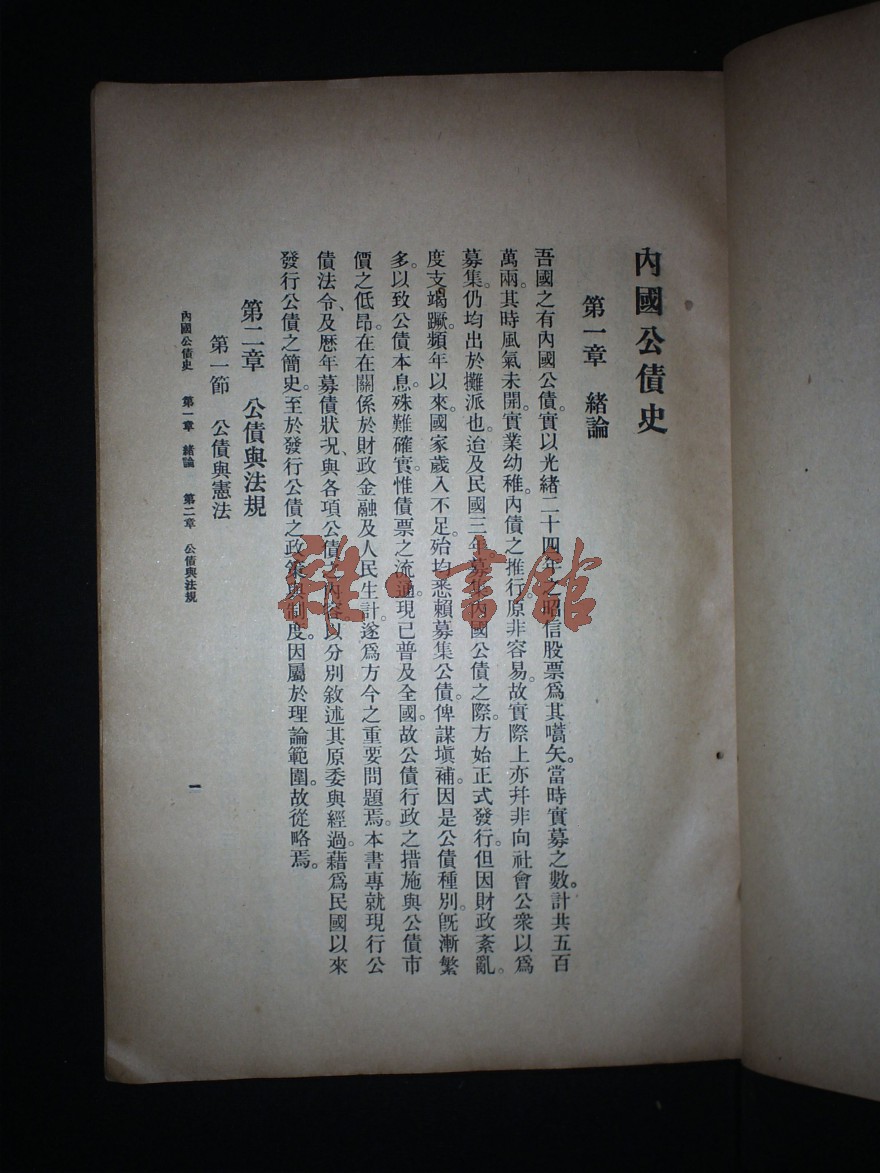 內國公債史
第一章 緒論
吾國之有內國公債。實以光緒二十四年之昭信股票爲其嚆矢。當時實募之數。計共五百
萬兩。其時風氣未開。實業幼稚。內債之推行。原非容易。故實際上亦幷非向社會公衆以爲
募集。仍均出於攤派也。迨及民國三年募集內國公債之際。方始正式發行。但因財政紊亂。
度支竭蹶。頻年以來。國家歲入不足。殆均悉賴募集公債。俾謀塡補。因是公債種別。旣漸繁
多。以致公債本息。殊難確實。惟債票之流通。現已普及全國。故公債行政之措施與公債市
價之低昂。在在關係於財政金融及人民生計。遂爲方今之重要問題焉。本書專就現行公
債法令、及歷年募債狀况、與各項公債之內容以分別敘述其原委與經過。藉爲民國以來
發行公債之簡史。至於發行公債之政策與制度。因屬於理論範圍。故從略焉。
第二章 公債與法規
第一節 公債與憲法
內國公債史 第一章 緒論 第二章 公債與法規
一
雜·書館